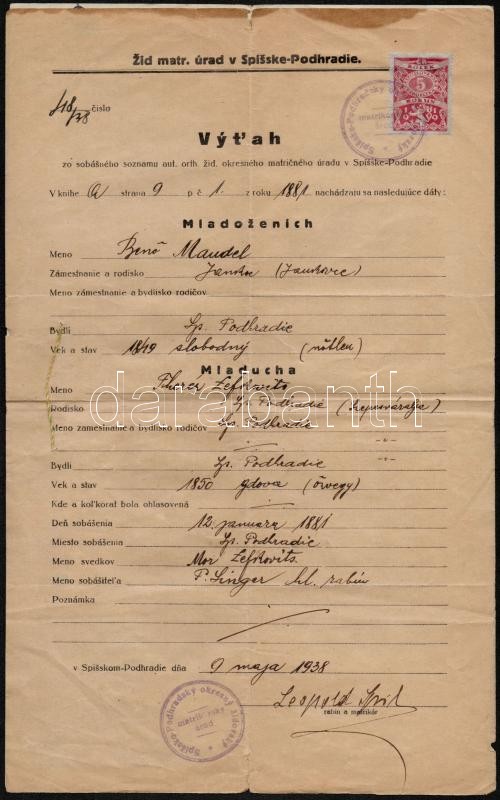 Žid matr. úrad v Spišske-Podhradie.
418/38 číslo
Výťah
zo sobášneho soznamu aut. orth. žid. okresného matričného úradu v Spišske-Podhradie
V knihe a strana 9 p č 1. z roku 1881 nachádzatu sa nasledujúce dáty:
Mladoženich
Meno Benő Mandel
Zámestnanie a rodisko (Jankovce)
Meno zámestnanie a bydlisko rodičov
Bydlí Sp. Podhradie
Vek a stav 1849 slobodný (nőtlen)
Mladucha
Meno Lefkovits
Rodisko Sp. Podhradie (Szepesváralja)
Meno zamestnanie a bydlisko rodičov Sp. Podhradie
Bydlí Sp. Podhradie
Vek a stav 1850 vdova (özvegy)
Kde a koľkorat bola ohlasovená
Deň sobášenia 12. januara 1881
Miesto sobášenia Sp. Podhradie
Meno svedkov Mor Lefkovits.
Meno sobášiteľa P. Singer hl. rabín
Poznámka
v Spišskom-Podhradie dňa 9 maja 1938
Leopold
rabín a matrikár
Spišsko-Podhradský okresný židovský
matrikársky
úrad
5
darabanth